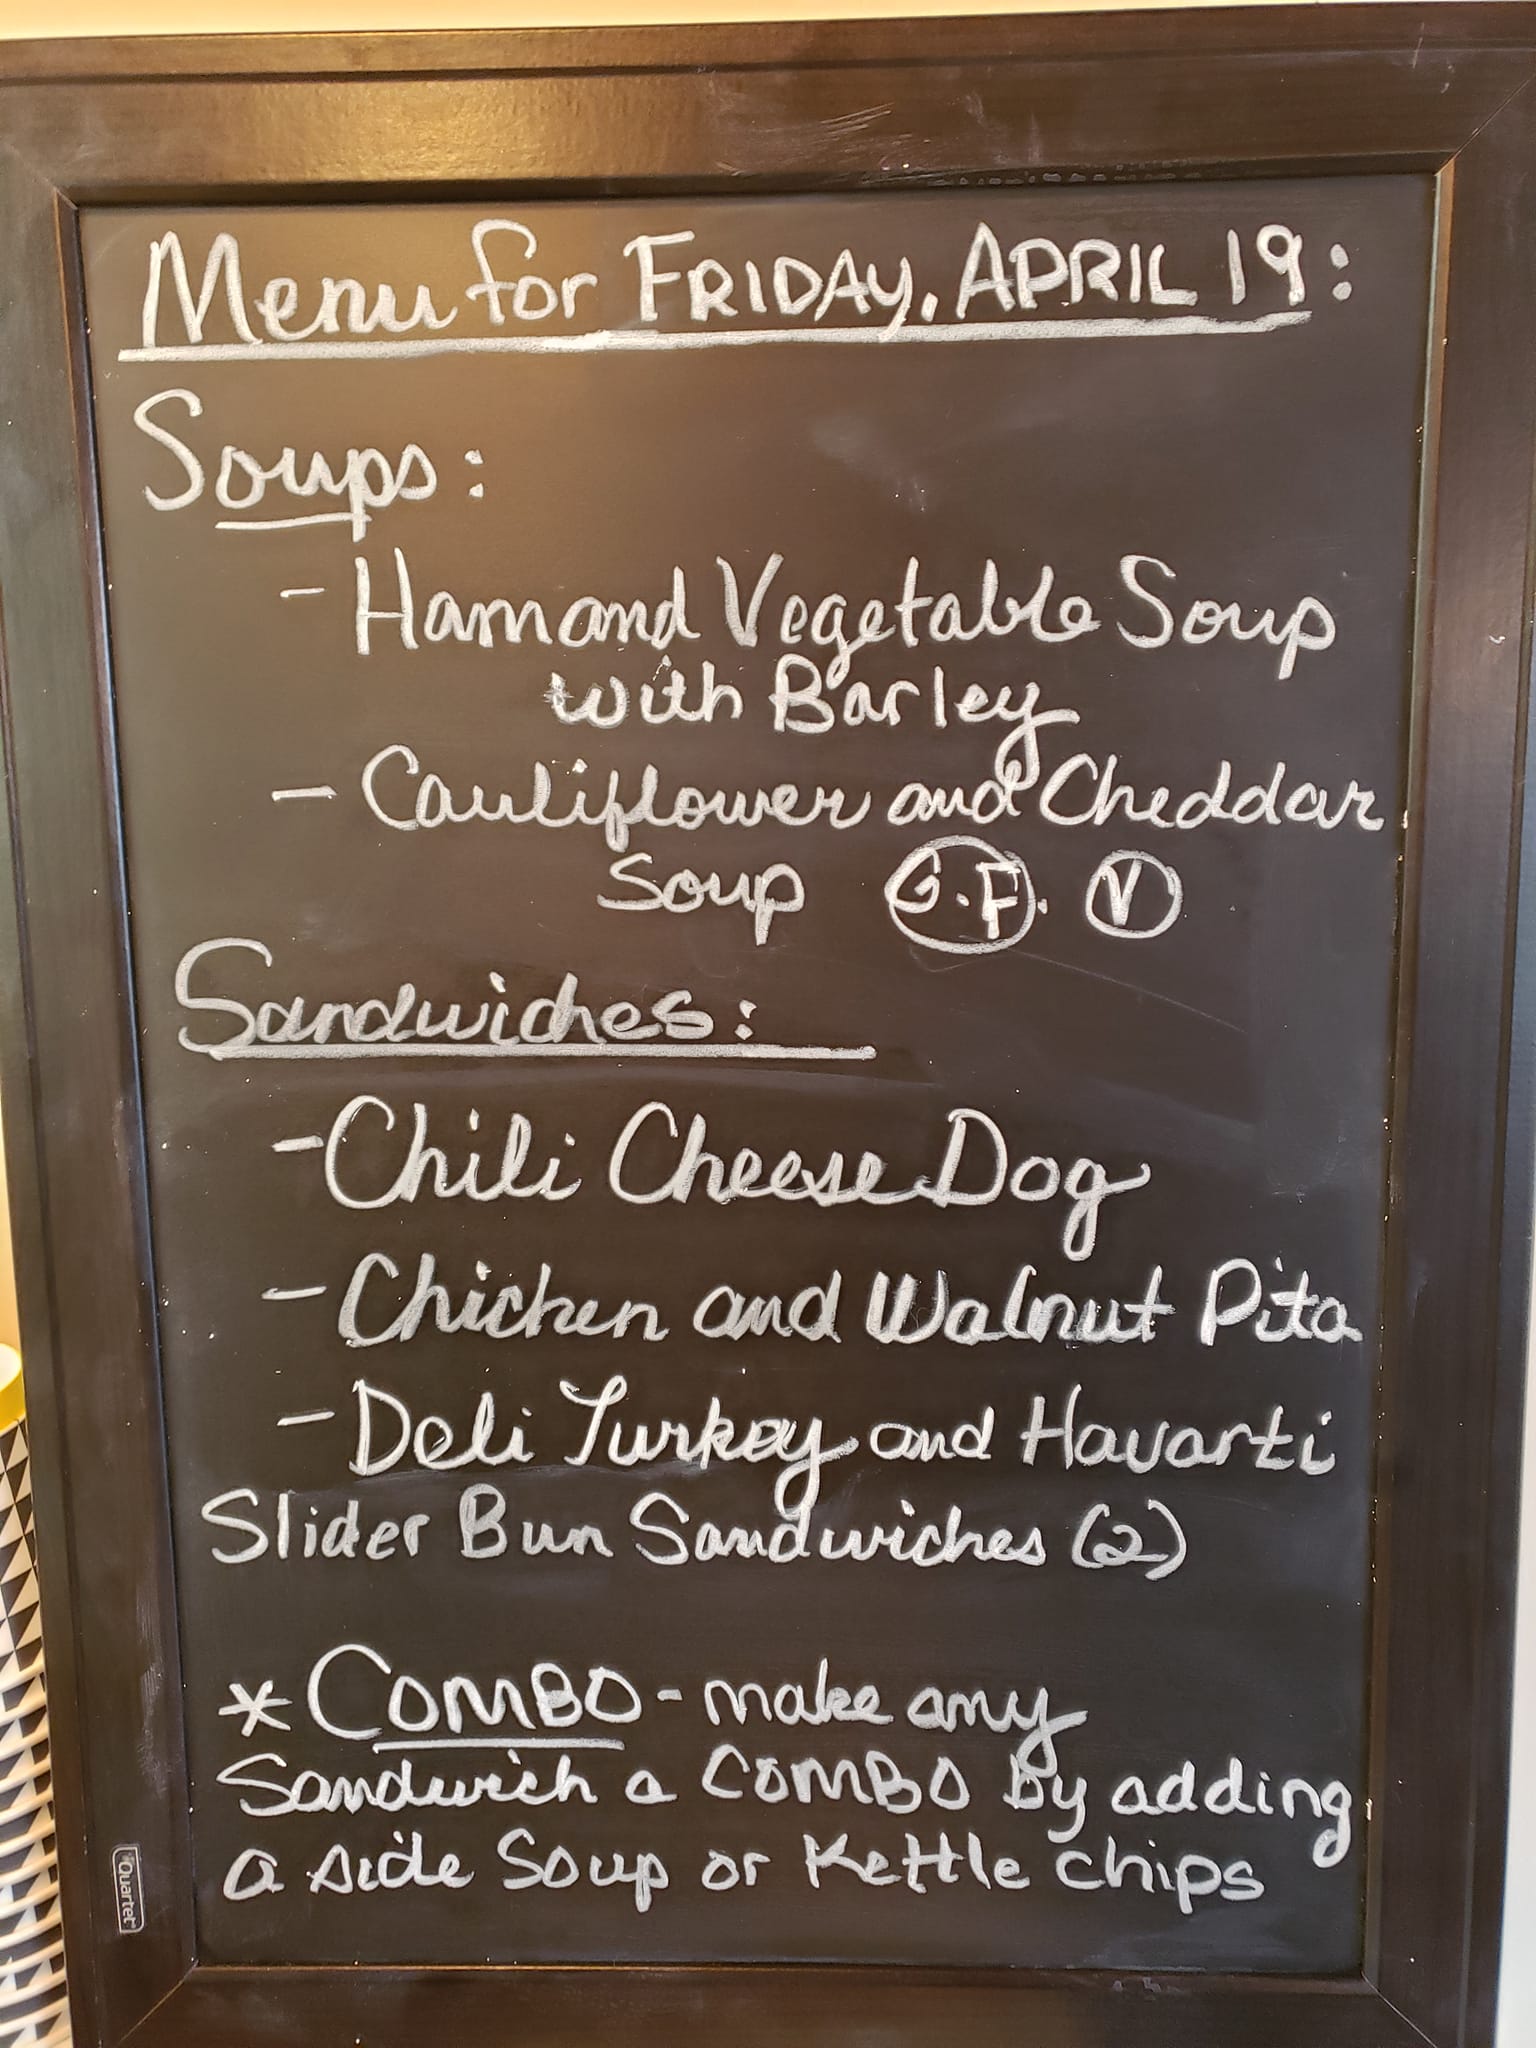 Menu for FRIDAY, APRIL 19:
Soups:
- Ham and Vegetable Soup
with Barley
- Cauliflower and Cheddar
Soup G.F. V
Sandwiches:
- Chili Cheese Dog
- Chicken and Walnut Pita
- Deli Turkey and Havarti
Slider Bun Sandwiches (2)
* COMBO - make any
Sandwich a COMBO by adding
a side Soup or Kettle chips
Quartet